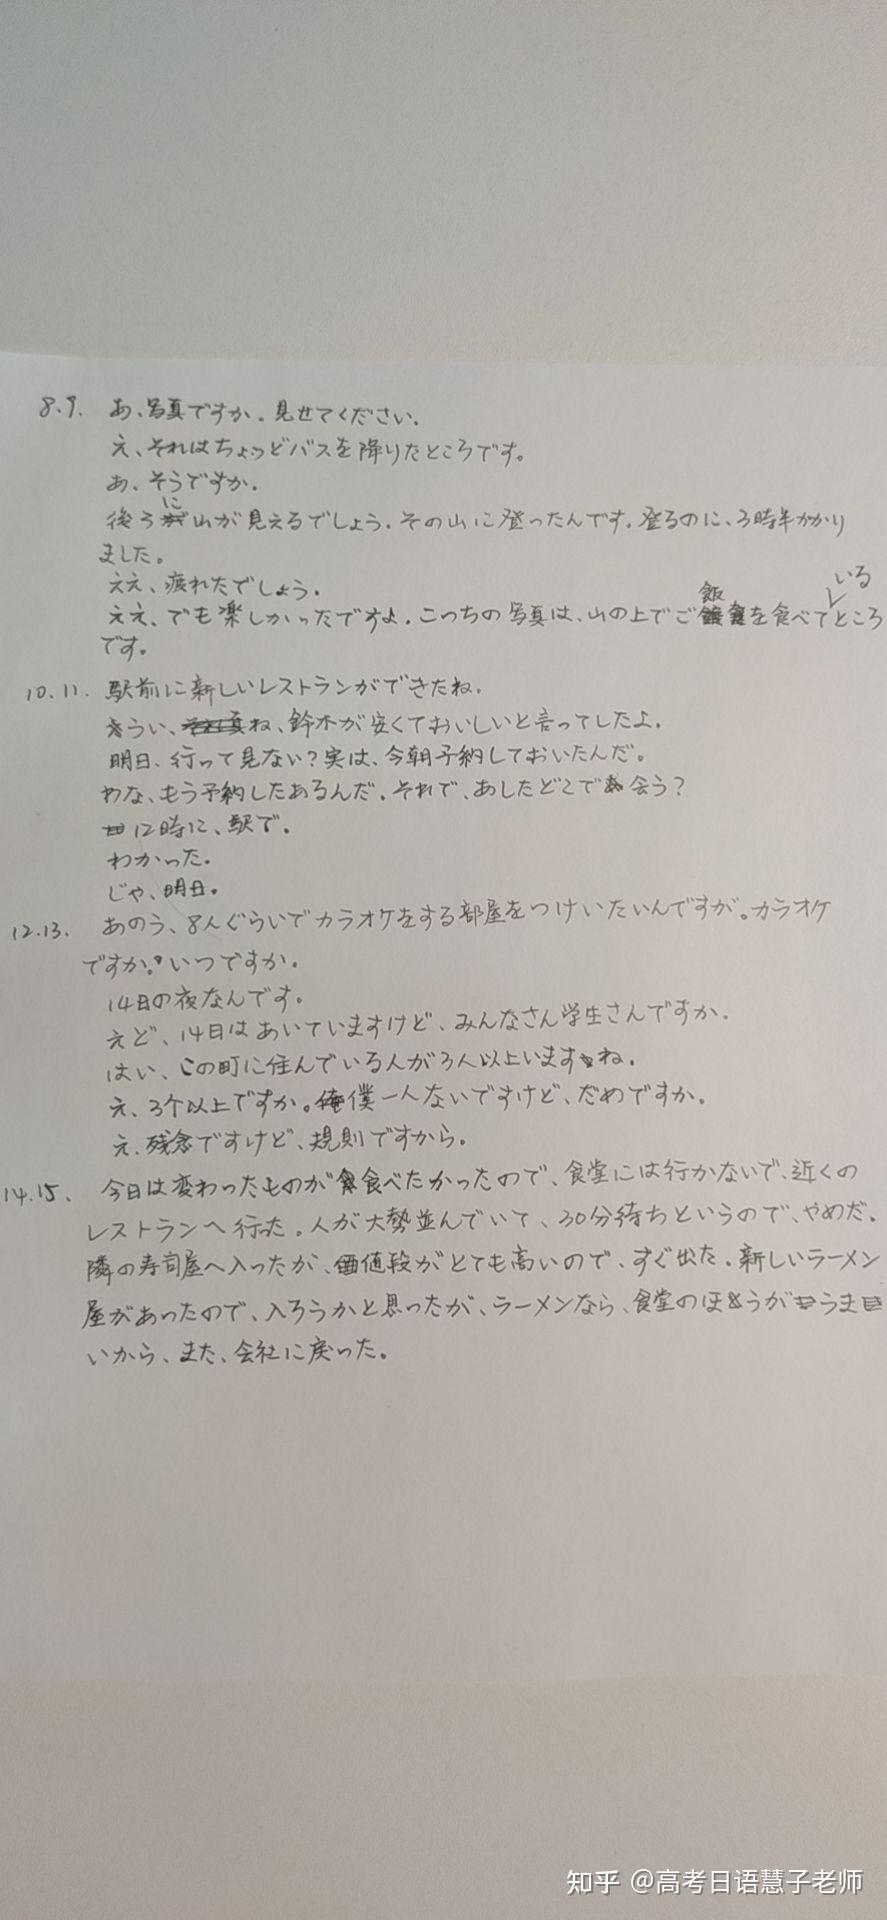 8.9. あ、写真ですか。見せてください。
え、それはちょっどバスを降りたところです。
あ、そうですか。
後ろに山が見えるでしょう。その山に登ったんです。登るのに、3時半かかり
ました。
ええ、疲れたでしょう。
ええ、でも楽しかったですよ。こっちの写真は、山の上でご飯を食べているところ
です。
10.11. 駅前に新しいレストランができたね。
そうい、ね、鈴木が安くておいしいと言ってしたよ。
明日、行って見ない？実は、今朝予約しておいたんだ。
わな、もう予約したあるんだ。それで、あしたどこで会う？
12時に、駅で。
わかった。
じゃ、明日。
12.13. あのう、8人ぐらいでカラオケをする部屋をつけいたいんですが。カラオケ
ですか。いつですか。
14日の夜なんです。
えど、14日はあいていますけど、みんなさん学生さんですか。
はい、この町に住んでいる人が3人以上いますね。
え、3个以上ですか。僕一人ないですけど、だめですか。
え、残念ですけど、規則ですから。
14.15. 今日は変わったものが食べたかったので、食堂には行かないで、近くの
レストランへ行った。人が大勢並んでいて、30分待ちというので、やめだ。
隣の寿司屋へ入ったが、値段がとても高いので、すぐ出た。新しいラーメン
屋があったので、入ろうかと思ったが、ラーメンなら、食堂のほうがうま
いから、また、会社に戻った。
知乎 @高考日语慧子老师